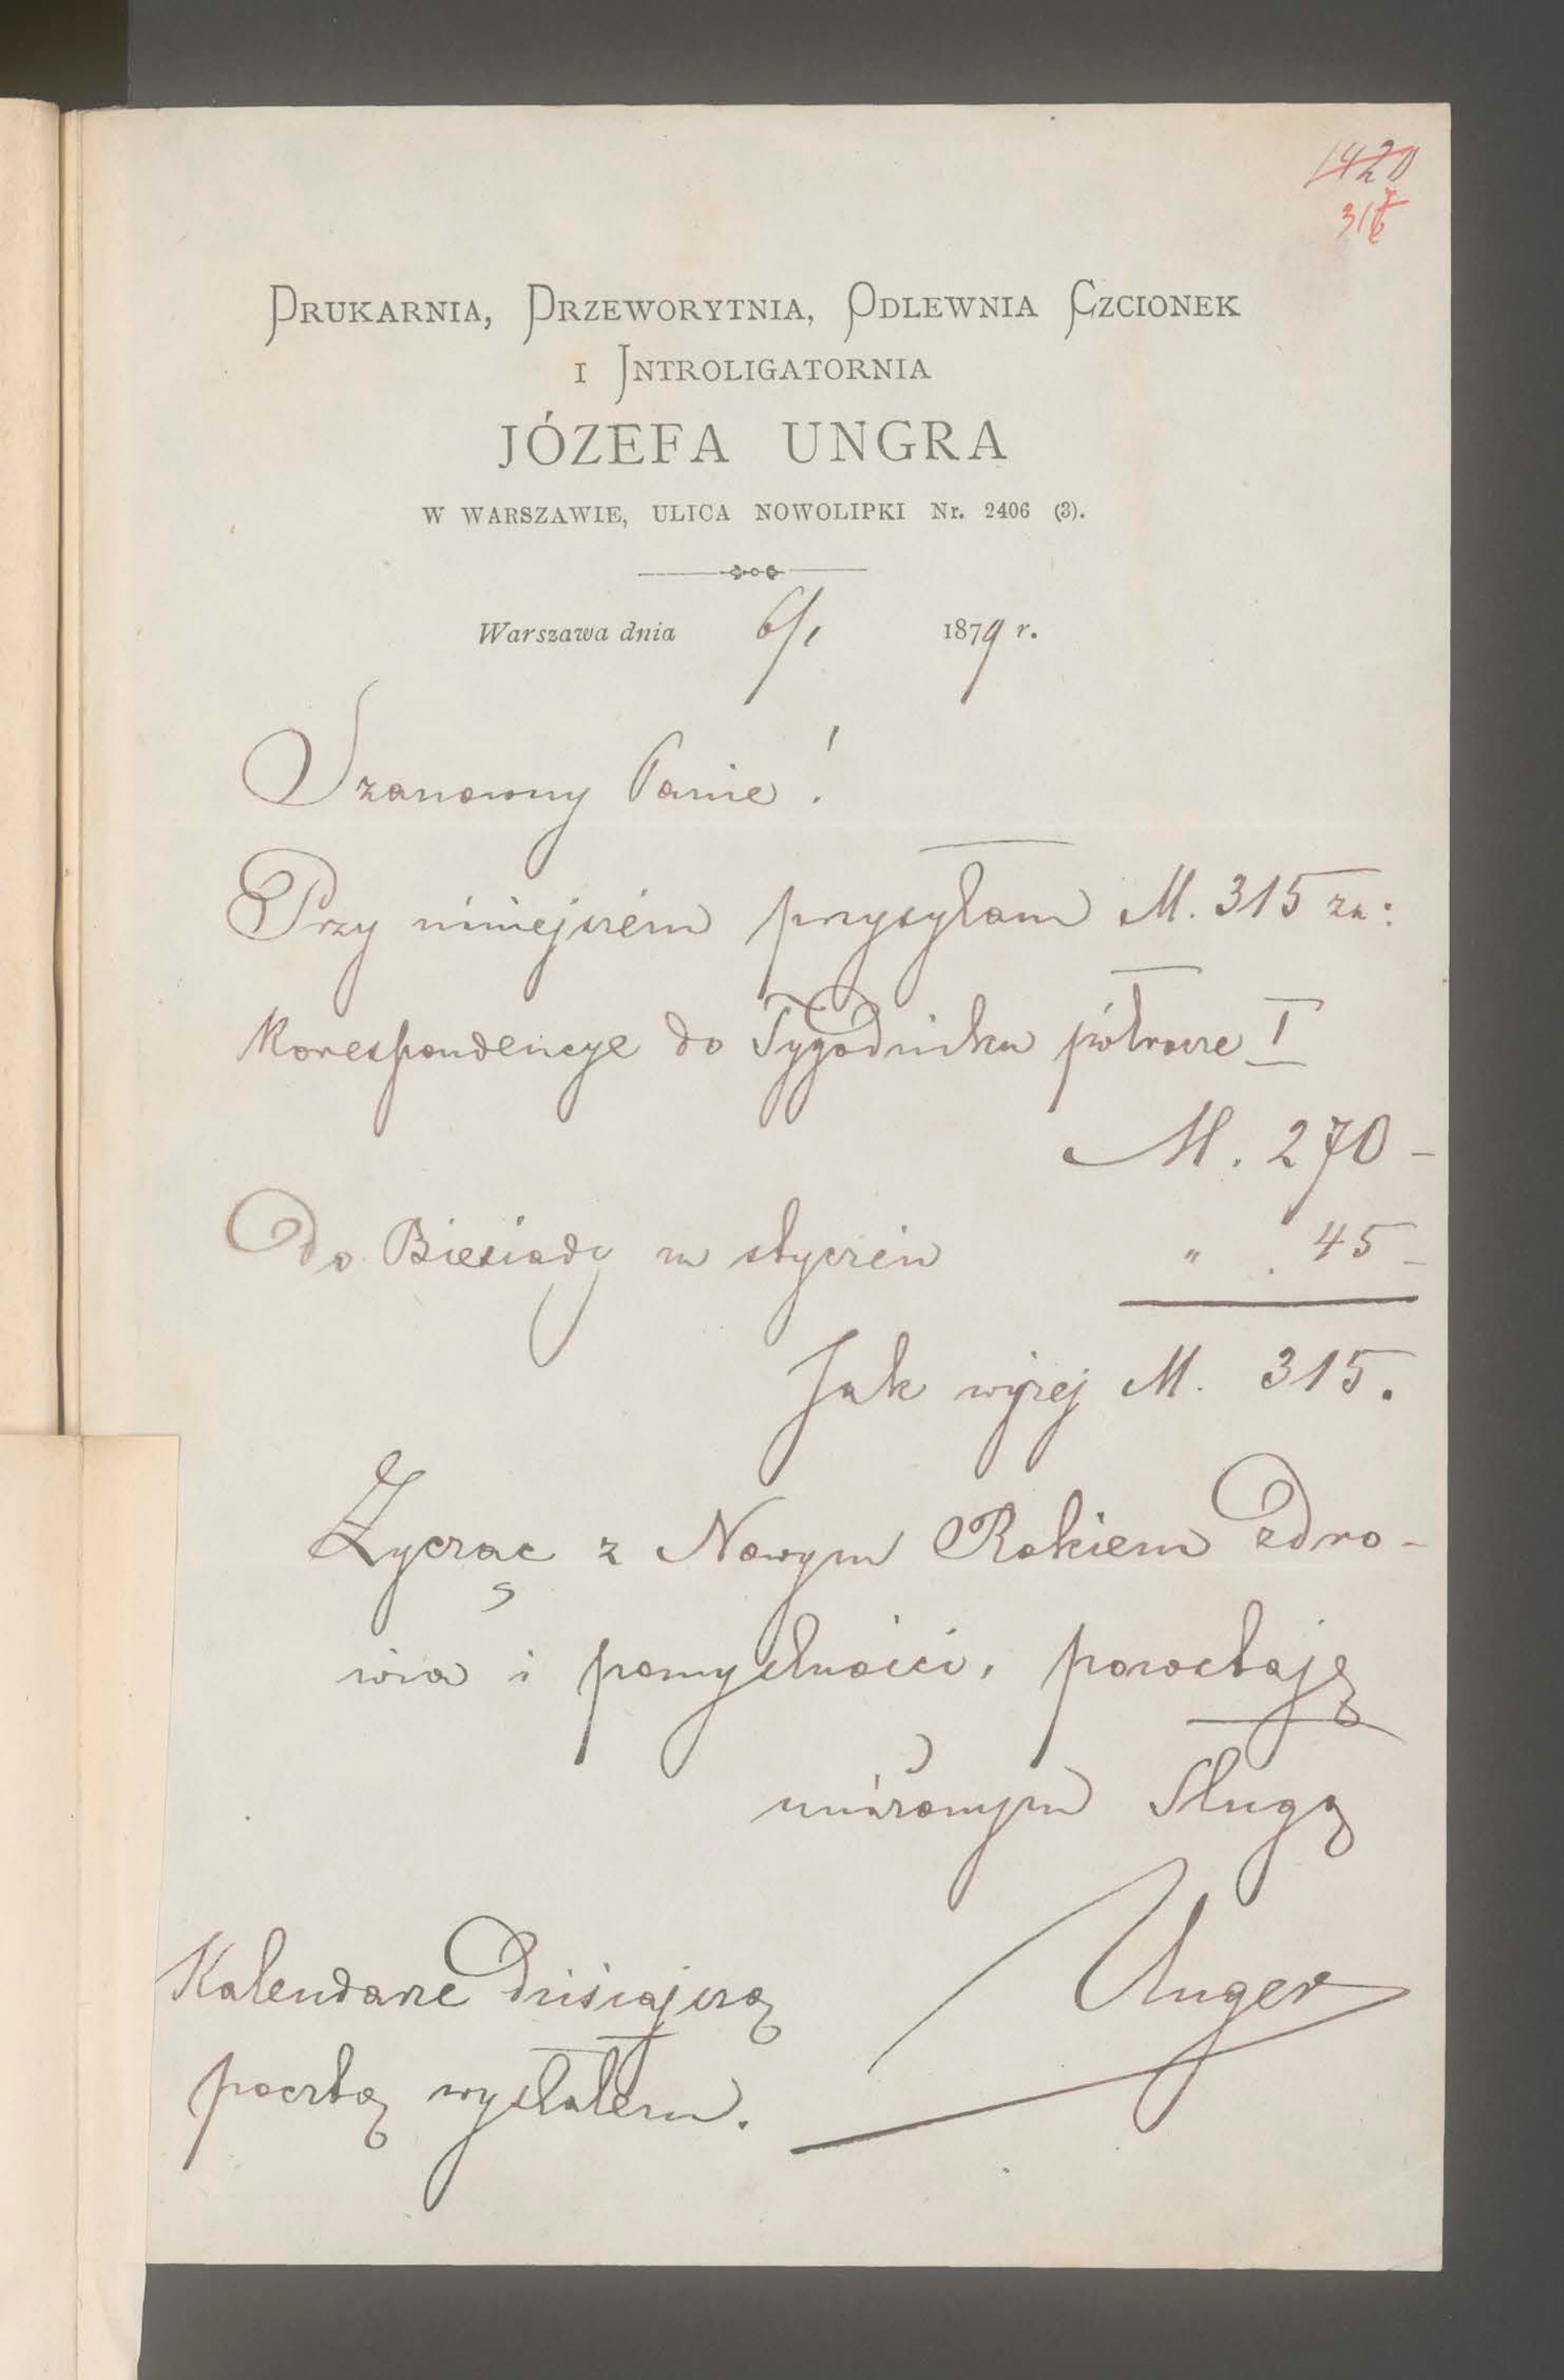 1420
316
DRUKARNIA, DRZEWORYTNIA, ODLEWNIA CZCIONEK
I INTROLIGATORNIA
JÓZEFA UNGRA
W WARSZAWIE, ULICA NOWOLIPKI Nr. 2406 (3).
Warszawa dnia 6/1 1879 r.
Szanowny Panie!
Przy niniejszém przysyłam M. 315 za:
Korespondencye do Tygodnika półrocze I
M. 270 –
Do Biesiady w styczeń " . 45 –
Jak wyżej M. 315.
Życząc z Nowym Rokiem zdro-
wia i pomyślności, pozostaję
uniżonym Sługą
Unger
Kalendarze dzisiajszą
pocztą wysłałem.